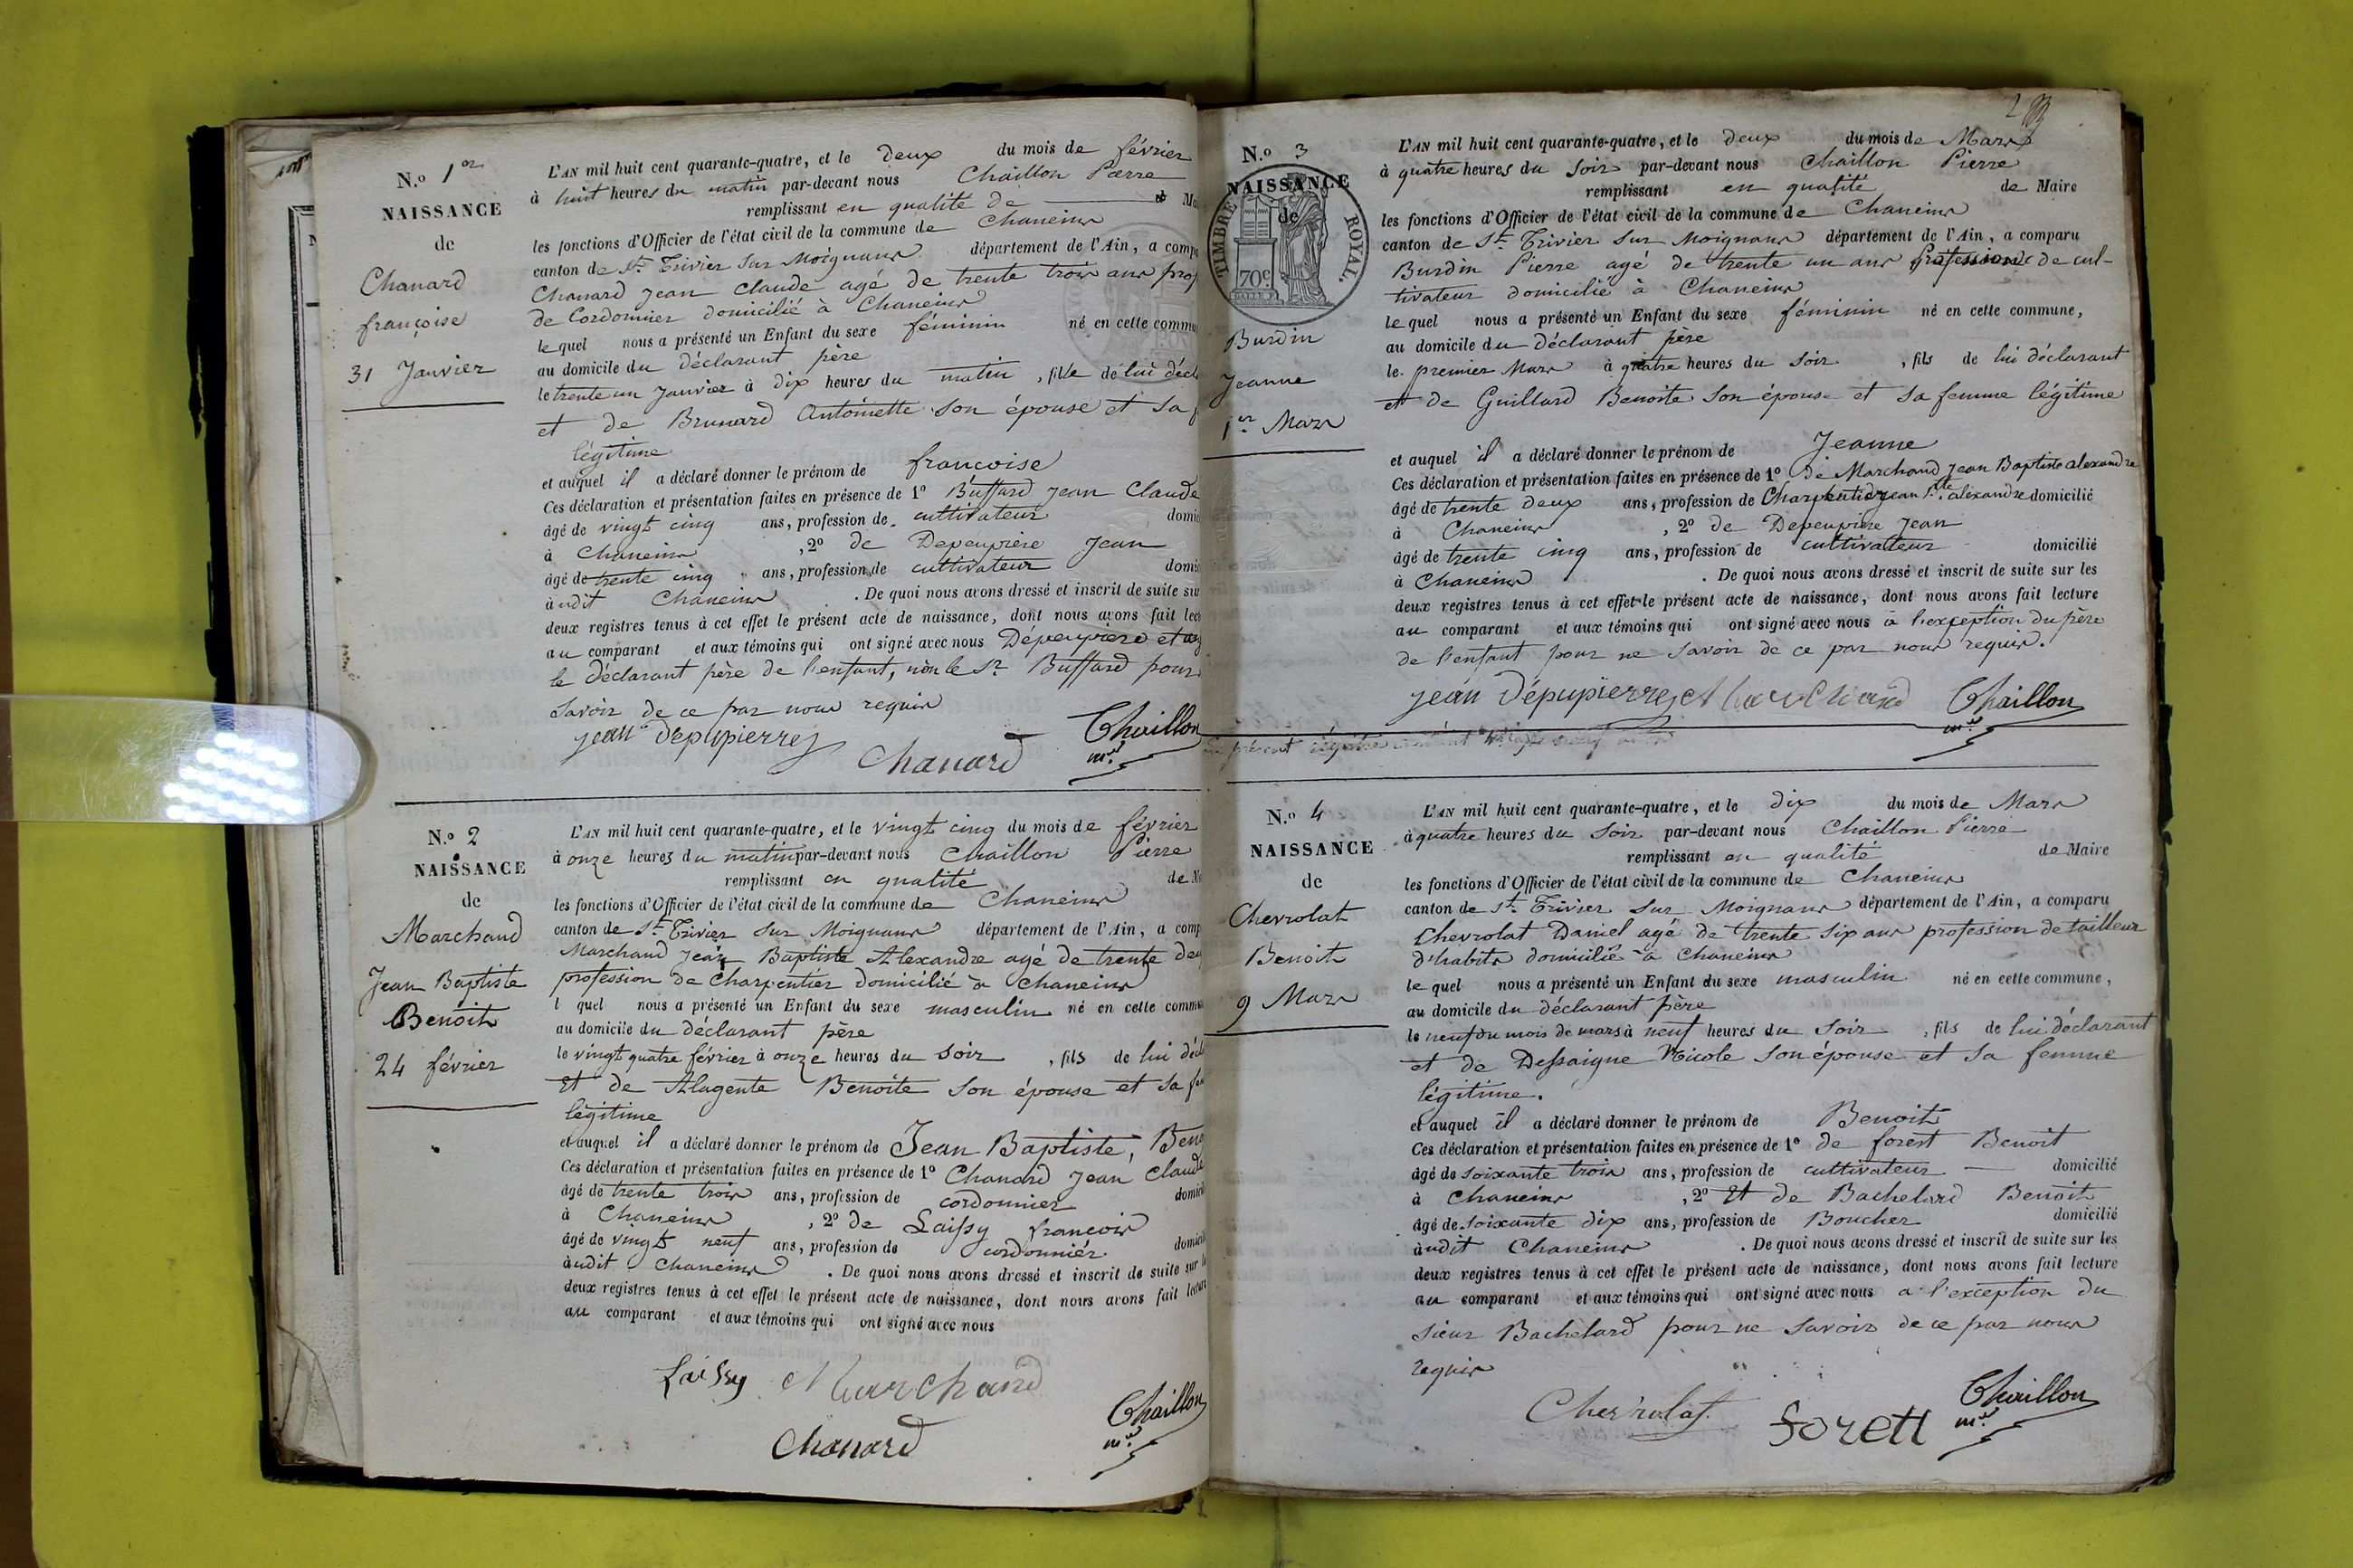 N.o 1er
NAISSANCE
de
Chanard
françoise
31 Janvier
L'AN mil huit cent quarante-quatre, et le deux du mois de février
à huit heures du matin par-devant nous Chaillon Pierre
remplissant en qualité de
les fonctions d'Officier de l'état civil de la commune de Chaneins
canton de St. Trivier Sur Moignans département de l'Ain, a comp
Chanard Jean Claude agé de trente trois ans prof
de Cordonnier domicilié à Chaneins
lequel nous a présenté un Enfant du sexe féminin né en cette commu
au domicile du déclarant père
le trente un Janvier à dix heures du matin , fille de lui décl
et de Brunard Antoinette son épouse et sa
légitime
et auquel il a déclaré donner le prénom de françoise
Ces déclaration et présentation faites en présence de 1º Buffard Jean Claude
âgé de vingt cinq ans, profession de cultivateur domic
à Chaneins , 2º de Depeupière Jean
âgé de trente cinq ans, profession de cultivateur domic
àudit Chaneins . De quoi nous avons dressé et inscrit de suite sur
deux registres tenus à cet effet le présent acte de naissance, dont nous avons fait lec
au comparant et aux témoins qui ont signé avec nous Dépeupière et
le déclarant père de l'enfant, non le Sr Buffard pour
savoir de ce par nous requis
jean depupierres
Chanard
Chaillon
mre
N.o 2
NAISSANCE
de
Marchand
Jean Baptiste
Benoit
24 février
L'AN mil huit cent quarante-quatre, et le vingt cinq du mois de février
à onze heures du matin par-devant nous Chaillon Pierre
remplissant en qualité de
les fonctions d'Officier de l'état civil de la commune de Chaneins
canton de St. Trivier Sur Moignans département de l'Ain, a comp
Marchand Jean Baptiste Alexandre agé de trente deu
profession de Charpentier domicilié à Chaneins
l quel nous a présenté un Enfant du sexe masculin né en cette commu
au domicile du déclarant père
le vingt quatre février à onze heures du soir , fils de lui décl
Et de Alagente Benoite son épouse et sa fe
légitime
et auquel il a déclaré donner le prénom de Jean Baptiste, Beno
Ces déclaration et présentation faites en présence de 1º Chanard Jean Claude
âgé de trente trois ans, profession de cordonnier domicil
à Chaneins , 2º de Laissy françois
âgé de vingt neuf ans, profession de cordonnier domicil
àudit Chaneins . De quoi nous avons dressé et inscrit de suite sur l
deux registres tenus à cet effet le présent acte de naissance, dont nous avons fait lecture
au comparant et aux témoins qui ont signé avec nous
Laissy Marchand
Chanard
Chaillon
mre
N.o 3
NAISSANCE
de
TIMBRE ROYAL.
70c
Burdin
Jeanne
1er Mars
L'AN mil huit cent quarante-quatre, et le deux du mois de Mars
à quatre heures du soir par-devant nous Chaillon Pierre
remplissant en qualité de Maire
les fonctions d'Officier de l'état civil de la commune de Chaneins
canton de St. Trivier Sur Moignans département de l'Ain, a comparu
Burdin Pierre agé de trente un ans profession de cul-
tivateur domicilié à Chaneins
lequel nous a présenté un Enfant du sexe féminin né en cette commune,
au domicile du déclarant père
le premier Mars à quatre heures du soir , fils de lui déclarant
et de Guillard Benoite son épouse et sa femme légitime
et auquel il a déclaré donner le prénom de Jeanne
Ces déclaration et présentation faites en présence de 1º De Marchand Jean Baptiste alexandre
âgé de trente deux ans, profession de Charpentier jean Bte alexandre domicilié
à Chaneins , 2º de Depeupière Jean
âgé de trente cinq ans, profession de cultivateur domicilié
à Chaneins . De quoi nous avons dressé et inscrit de suite sur les
deux registres tenus à cet effet le présent acte de naissance, dont nous avons fait lecture
au comparant et aux témoins qui ont signé avec nous à l'exception du père
de l'enfant pour ne savoir de ce par nous requis.
jean dépupierres Marchand Chaillon
mre
N.o 4
NAISSANCE
de
Chevrolat
Benoit
9 Mars
L'AN mil huit cent quarante-quatre, et le dix du mois de Mars
à quatre heures du soir par-devant nous Chaillon Pierre
remplissant en qualité de Maire
les fonctions d'Officier de l'état civil de la commune de Chaneins
canton de St. Trivier Sur Moignans département de l'Ain, a comparu
Chevrolat Daniel agé de trente six ans profession de tailleur
d'habits domicilié à Chaneins
lequel nous a présenté un Enfant du sexe masculin né en cette commune,
au domicile du déclarant père
le neuf du mois de mars à neuf heures du soir , fils de lui déclarant
et de Dessaigne Nicole son épouse et sa femme
légitime.
et auquel il a déclaré donner le prénom de Benoit
Ces déclaration et présentation faites en présence de 1º de forest Benoit
âgé de soixante trois ans, profession de cultivateur domicilié
à Chaneins , 2º Et de Bachelard Benoit
âgé de soixante dix ans, profession de Boucher domicilié
àudit Chaneins . De quoi nous avons dressé et inscrit de suite sur les
deux registres tenus à cet effet le présent acte de naissance, dont nous avons fait lecture
au comparant et aux témoins qui ont signé avec nous a l'exception du
sieur Bachelard pour ne savoir de ce par nous
requis
Chevrolat. forett Chaillon
mre